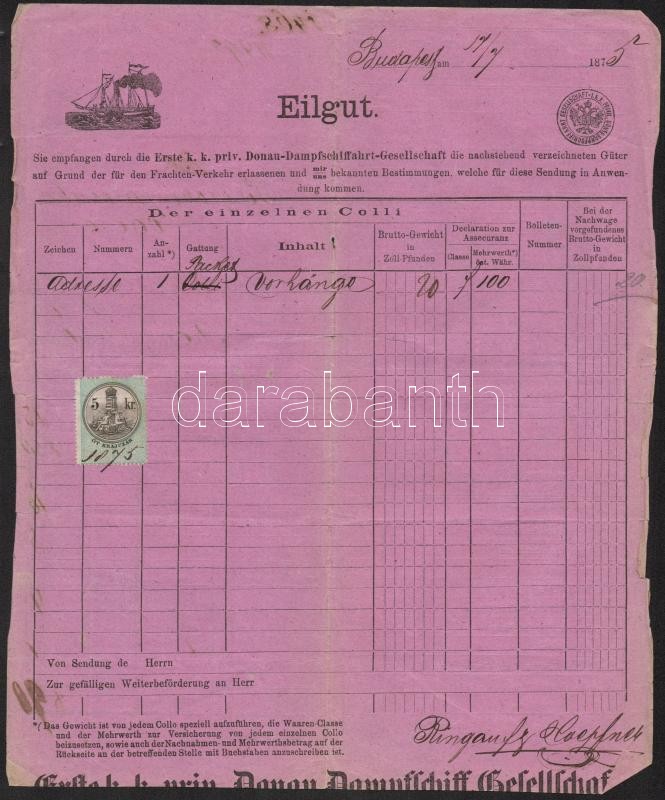 Budapest am 17/7 1875
Eilgut.
Sie empfangen durch die Erste k. k. priv. Donau-Dampfschiffahrt-Gesellschaft die nachstehend verzeichneten Güter
auf Grund der für den Frachten-Verkehr erlassenen und mir/uns bekannten Bestimmungen, welche für diese Sendung in Anwen-
dung kommen.
Der einzelnen Colli
Zeichen
Nummern
An-
zahl *)
Gattung
Inhalt
Brutto-Gewicht
in
Zoll-Pfunden
Declaration zur
Assecuranz
Classe
Mehrwerth*)
öst. Währ.
Bolleten-
Nummer
Bei der
Nachwage
vorgefundenes
Brutto-Gewicht
in
Zollpfunden
Adresse 1 Vorhänge 20 f 100 20
darabanth
5 kr.
ÖT KRAJCZÁR
1875
Von Sendung de Herrn
Zur gefälligen Weiterbeförderung an Herr
*( Das Gewicht ist von jedem Collo speziell aufzuführen, die Waaren-Classe
und der Mehrwerth zur Versicherung von jedem einzelnen Collo
beizusetzen, sowie auch der Nachnahmen- und Mehrwerthsbetrag auf der
Rückseite an der betreffenden Stelle mit Buchstaben anzuschreiben ist.
Erste k. k. priv. Donau Dampfschiff Gesellschaf